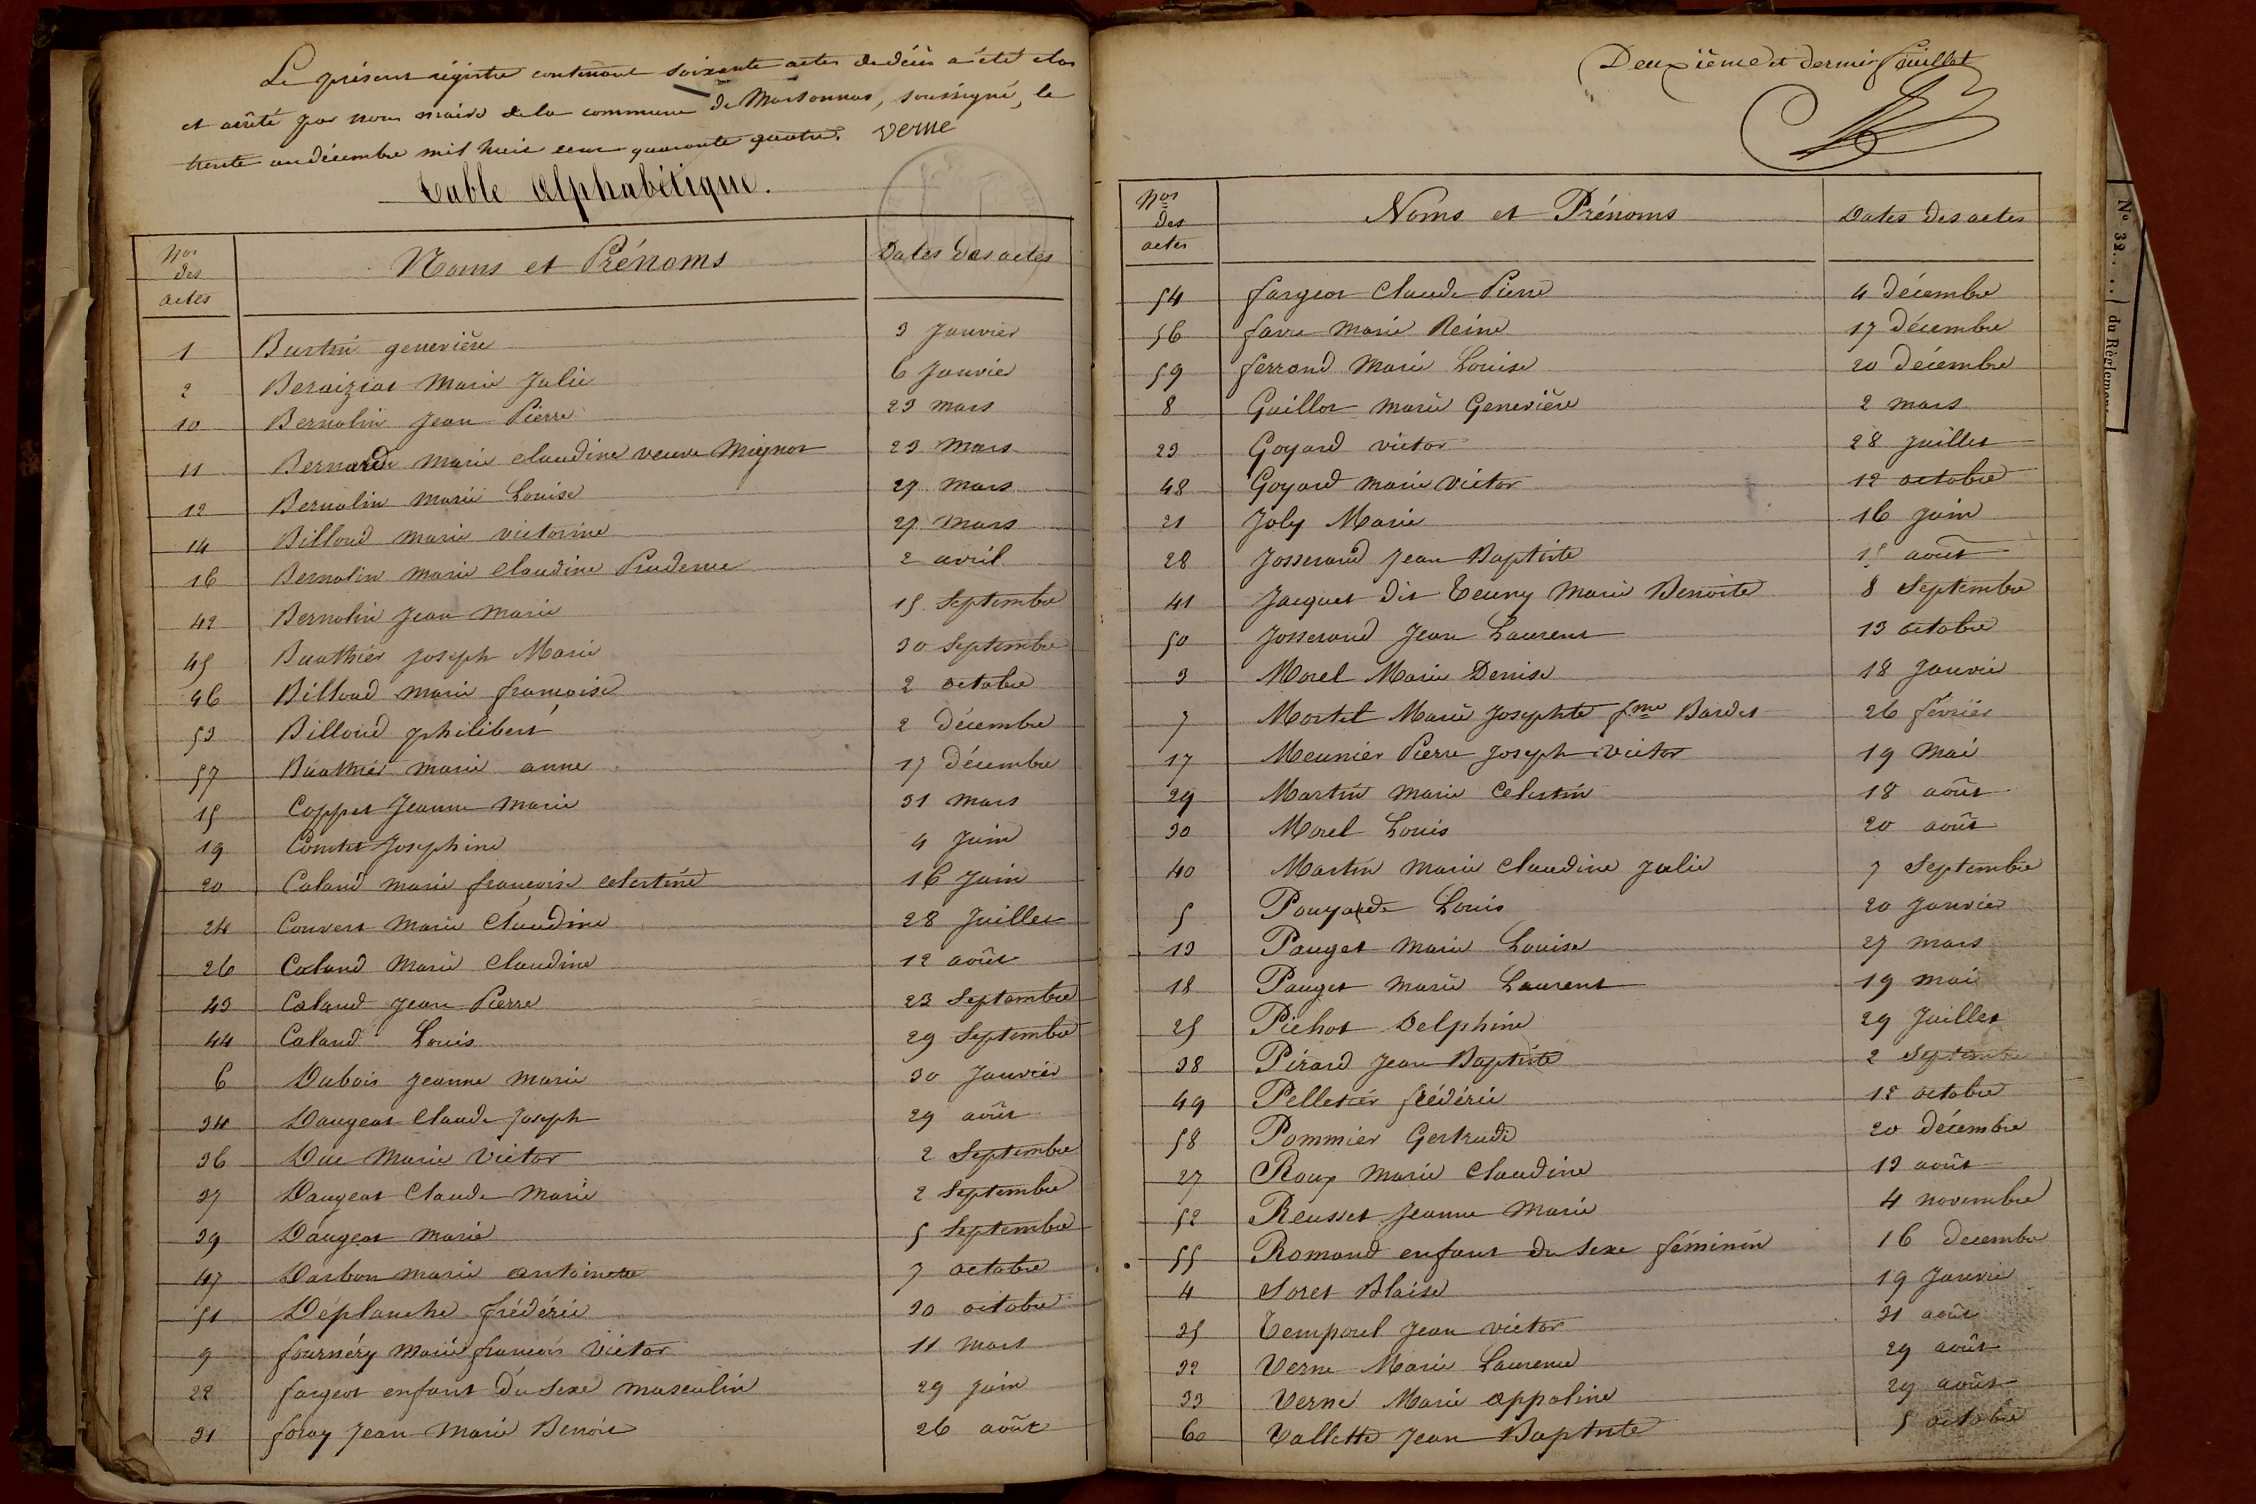 Le présent régistre contenant soixante actes de décès a été clos
et arrêté par nous maire de la commune de Marsonnas, soussigné, le
trente un décembre mil huit cent quarante quatre. Verne
Table Alphabétique.
Nos des actes Noms et Prénoms Dates des actes
1 Burtin genevière 3 Janvier
2 Beraiziat Marie Julie 6 Janvier
10 Bernolin Jean Pierre 23 mars
11 Bernard marie claudine veuve Mignot 23 Mars
12 Bernolin Marie Louise 27 Mars
14 Billoud marie victorine 27 Mars
16 Bernolin marie claudine Prudence 2 avril
42 Bernolin Jean Marie 15 Septembre
45 Buathier Joseph Marie 30 Septembre
46 Billoud marie françoise 2 octobre
53 Billoud philibert 2 Décembre
57 Buathier marie anne 17 décembre
15 Coppet Jeanne Marie 31 mars
19 Comtet Josephine 4 Juin
20 Caland marie françoise celestine 16 Juin
24 Convert Marie Claudine 28 Juillet
26 Caland Marie Claudine 12 août
43 Caland Jean Pierre 23 Septembre
44 Caland Louis 29 Septembre
6 Dubois Jeanne Marie 30 Janvier
34 Daugeat Claude Joseph 29 août
36 Duc Marie Victor 2 Septembre
37 Daugeat Claude Marie 2 Septembre
39 Daugeat Marie 5 Septembre
47 Darbon marie antoinette 7 octobre
51 Déplanche frédéric 30 octobre
9 fournéry Marie françois Victor 11 Mars
22 fargeot enfant du sexe masculin 29 Juin
31 foray Jean Marie Benoit 26 août
Deuxième et dernier feuillet
Nos des actes Noms et Prénoms Dates des actes
54 fargeot Claude Pierre 4 décembre
56 favre Marie Reine 17 décembre
59 ferrand Marie Louise 20 décembre
8 Guillot Marie Genevière 2 mars
23 Goyard victor 28 Juillet
48 Goyard marie Victor 12 octobre
21 Joly Marie 16 Juin
28 Josserand Jean Baptiste 15 août
41 Jacquet dit Teuny Marie Benoite 8 Septembre
50 Josserand Jean Laurent 13 octobre
3 Morel Marie Denise 18 Janvier
7 Mortel Marie Josephte fme Bardet 26 février
17 Meunier Pierre Joseph Victor 19 Mai
29 Martin Marie Celestin 18 août
30 Morel Louis 20 août
40 Martin Marie Claudine Julie 7 Septembre
5 Pouyard Louis 20 Janvier
13 Pauget Marie Louise 27 mars
18 Pauget Marie Laurent 19 mai
25 Pichot Delphine 29 Juillet
38 Pirard Jean Baptiste 2 Septembre
49 Pelletier frédéric 12 octobre
58 Pommier Gertrude 20 décembre
27 Roux Marie Claudine 13 août
52 Reusset Jeanne Marie 4 novembre
55 Romand enfant du sexe féminin 16 decembre
4 Soret Blaise 19 Janvier
35 Temporel Jean victor 31 août
32 Verne Marie Laurence 29 août
33 Verne Marie appoline 29 août
60 Vallette Jean Baptiste 5 octobre
No 32. . . . du Règlement